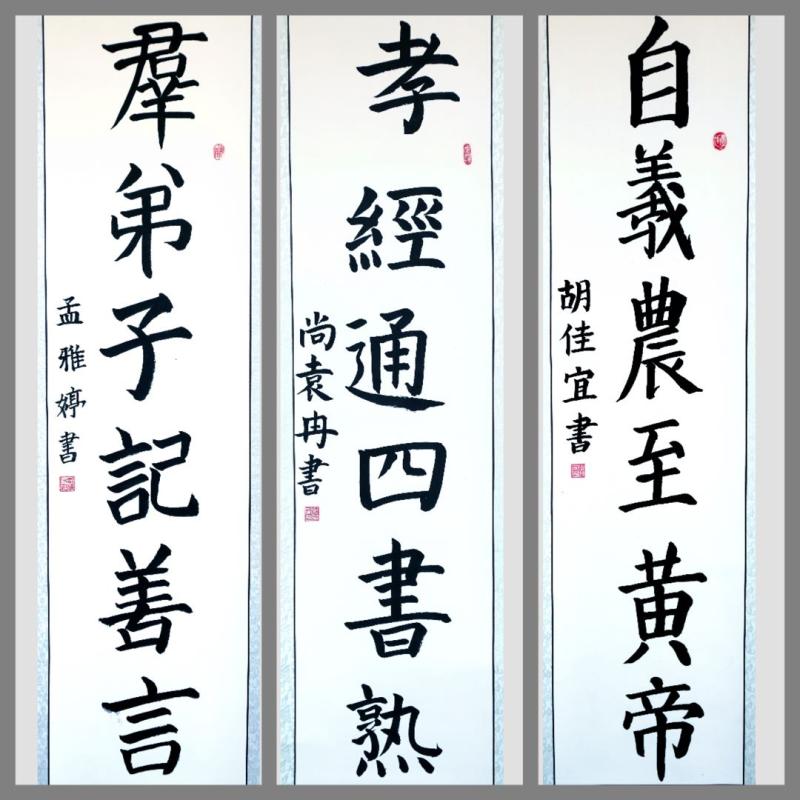 羣弟子記善言
孟雅婷書
孝經通四書熟
尚袁冉書
自羲農至黄帝
胡佳宜書